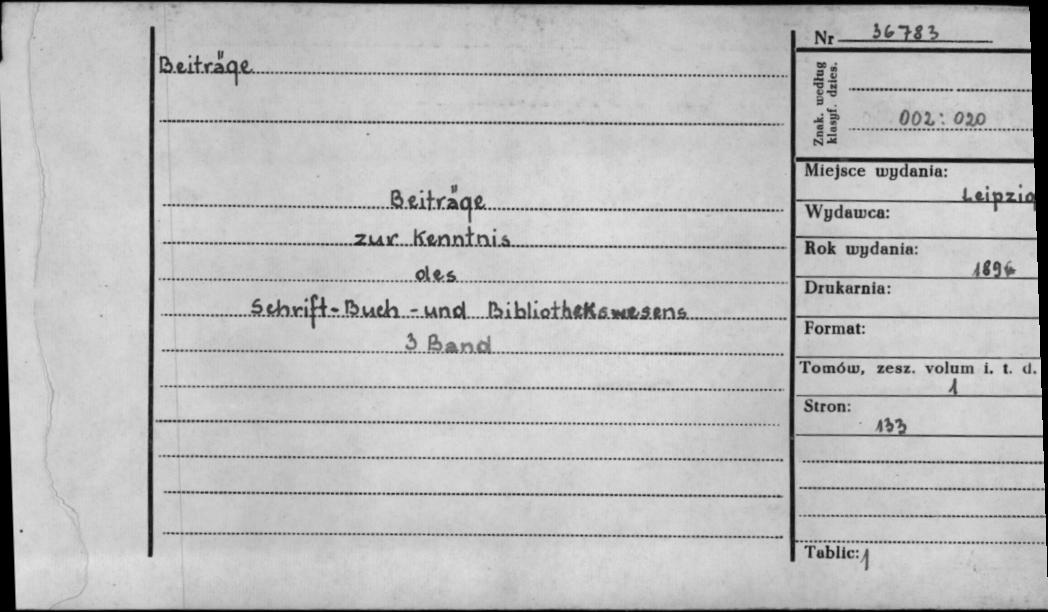 Beiträge
Beiträge
zur Kenntnis
des
Schrift-Buch-und Bibliothekswesens
3 Band
Nr 36783
Znak. według
klasyf. dzies.
002:020
Miejsce wydania:
Leipzig
Wydawca:
Rok wydania:
1896
Drukarnia:
Format:
Tomów, zesz. volum i. t. d.
1
Stron:
133
Tablic: 1